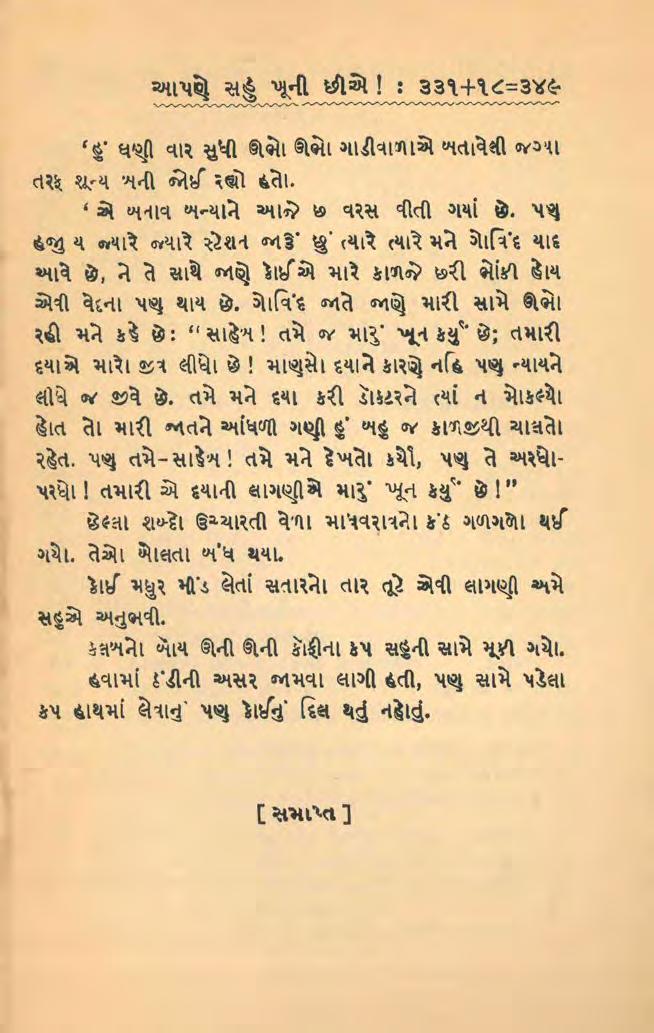 આપણે સહુ ખૂની છીએ ! : ૩૩૧+૧૮=૩૪૯
‘હું ઘણી વાર સુધી ઊભો ઊભો ગાડીવાળાએ બતાવેલી જગ્યા
તરફ શૂન્ય બની જોઈ રહ્યો હતો.
‘ એ બનાવ બન્યાને આજે છ વરસ વીતી ગયાં છે. પણ
હજુ ય જ્યારે જ્યારે સ્ટેશન જાઉં છું ત્યારે ત્યારે મને ગોવિંદ યાદ
આવે છે, ને તે સાથે જાણે કોઈએ મારે કાળજે છરી ભોંકી હોય
એવી વેદના પણ થાય છે. ગોવિંદ જાતે જાણે મારી સામે ઊભો
રહી મને કહે છે: “સાહેબ! તમે જ મારું ખૂન કર્યું છે; તમારી
દયાએ મારો જીવ લીધો છે ! માણસો દયાને કારણે નહિ પણ ન્યાયને
લીધે જ જીવે છે. તમે મને દયા કરી ડૉક્ટરને ત્યાં ન મોકલ્યો
હોત તો મારી જાતને આંધળી ગણી હું બહુ જ કાળજીથી ચાલતો
રહેત. પણ તમે-સાહેબ! તમે મને દેખતો કર્યો, પણ તે અરધો-
પરધો ! તમારી એ દયાની લાગણીએ મારું ખૂન કર્યું છે !”
છેલ્લા શબ્દો ઉચ્ચારતી વેળા માધવરાવનો કંઠ ગળગળો થઈ
ગયો. તેઓ બોલતા બંધ થયા.
કોઈ મધુર મીંડ લેતાં સતારનો તાર તૂટે એવી લાગણી અમે
સહુએ અનુભવી.
કલબનો બૉય ઊની ઊની કૉફીના કપ સહુની સામે મૂકી ગયો.
હવામાં ઠંડીની અસર જામવા લાગી હતી, પણ સામે પડેલા
કપ હાથમાં લેવાનું પણ કોઈનું દિલ થતું નહોતું.
[ સમાપ્ત ]